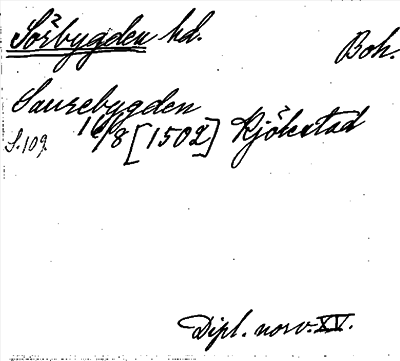 Sörbygden hd.
Boh.
Saurebygden
S. 109. 16/8 [1502] Kjölstad
Dipl. norv. XV.